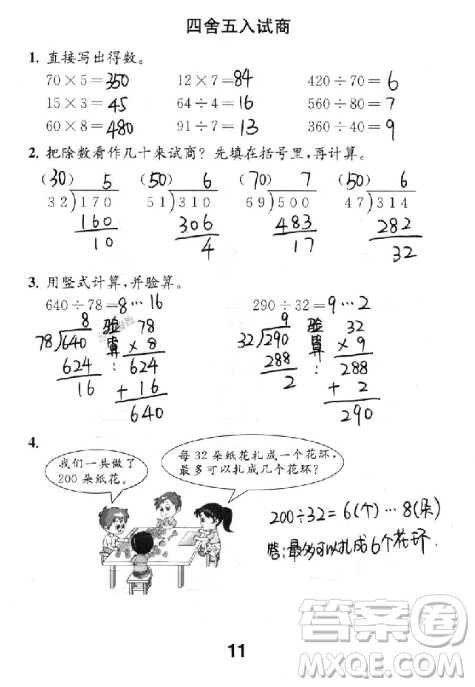 四舍五入试商
1. 直接写出得数。
70×5=350 12×7=84 420÷70=6
15×3=45 64÷4=16 560÷80=7
60×8=480 91÷7=13 360÷40=9
2. 把除数看作几十来试商？先填在括号里，再计算。
(30) 5 (50) 6 (70) 7 (50) 6
32)170 51)310 69)500 47)314
160 306 483 282
10 4 17 32
3. 用竖式计算，并验算。
640÷78=8…16 290÷32=9…2
8 验 78 9 验 32
78)640 算 ×8 32)290 算 ×9
624 : 624 288 : 288
16 +16 2 +2
640 290
4.
我们一共做了
200朵纸花。
每32朵纸花扎成一个花环，
最多可以扎成几个花环？
200÷32=6(个)…8(朵)
答:最多可以扎成6个花环.
11
答案圈
MXQE.COM